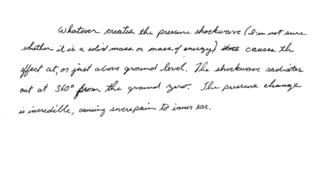 Whatever creates the pressure shockwave (I'm not sure
whether it is a solid mass or mass of energy) causes th
effect at, or just above ground level. The shockwave radiates
out at 360° from the ground zero. The pressure change
is incredible, causing severe pain to inner ear.